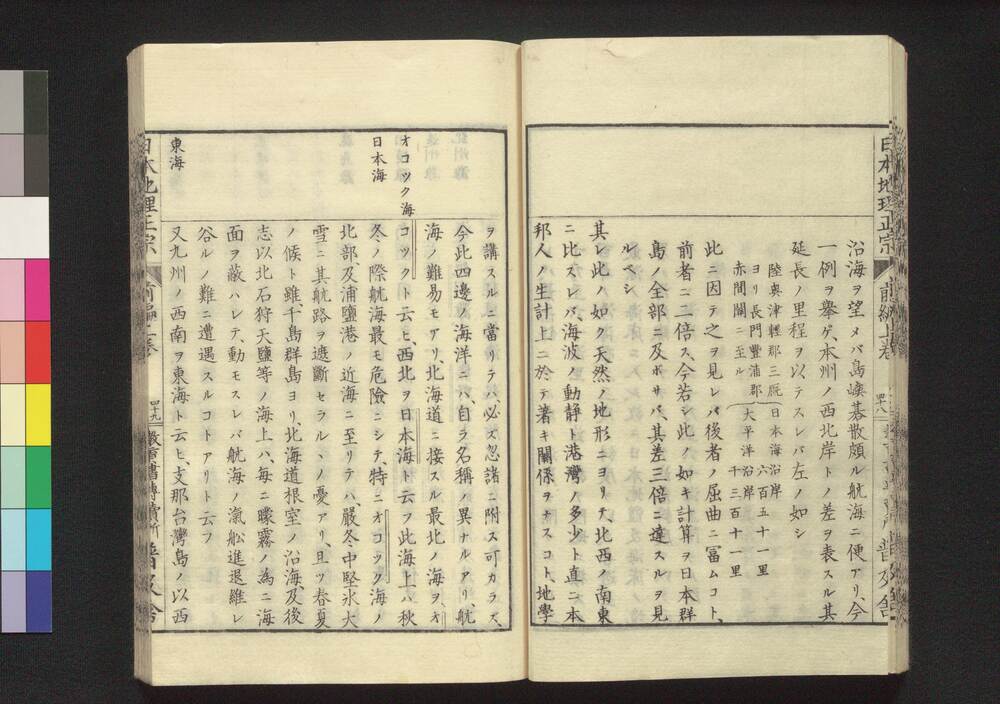 日本地理正宗 前編上巻 四十八 普及舎
沿海ヲ望メバ島嶼碁散頗ル航海ニ便アリ、今
一例ヲ擧ゲ、本州ノ西北岸トノ差ヲ表スル其
延長ノ里程ヲ以テスレバ左ノ如シ
陸奥津輕郡三厩
ヨリ長門豐浦郡
赤間關ニ至ル
日本海沿岸
六百五十一里
大平洋沿岸
千三百十一里
此ニ因テ之ヲ見レバ後者ノ屈曲ニ冨ムコト、
前者ニ二倍ス、今若シ此ノ如キ計算ヲ日本群
島ノ全部ニ及ボサバ、其差三倍ニ違スルヲ見
ルベシ
其レ此ノ如ク天然ノ地形ニヨリテ、北西ノ南東
ニ比スレバ、海波ノ動靜ト港灣ノ多少ト直ニ本
邦人ノ生計上ニ於テ著キ關係ヲナスコト、地學
ヲ講スルニ當リテハ、必ズ忽諸ニ附ス可カラズ、
今此四邊ノ海洋ニハ、自ラ名稱ノ異ナルアリ、航
海ノ難易モアリ、北海道ニ接スル最北ノ海ヲ、オ
オコツク海
コツクト云ヒ、西北ヲ日本海ト云フ此海上ハ秋
日本海
冬ノ際航海最モ危險ニシテ、特ニオコツク海ノ
北部、及浦鹽港ノ近海ニ至リテハ嚴冬中堅氷大
雪ニ其航路ヲ遮斷セラルヽノ憂アリ、且ツ春夏
ノ候ト雖、千島群島ヨリ、北海道根室ノ沿海、及後
志以北石狩天鹽等ノ海上ハ、毎ニ曚霧ノ為ニ海
面ヲ蔽ハレテ、動モスレバ航海ノ滊舩進退維レ
谷ルノ難ニ遭遇スルコトアリト云フ
東海
又九州ノ西南ヲ東海ト云ヒ、支那台灣島ノ以西
日本地理正宗 前編上巻 四十九 教育書專賣所普及舍